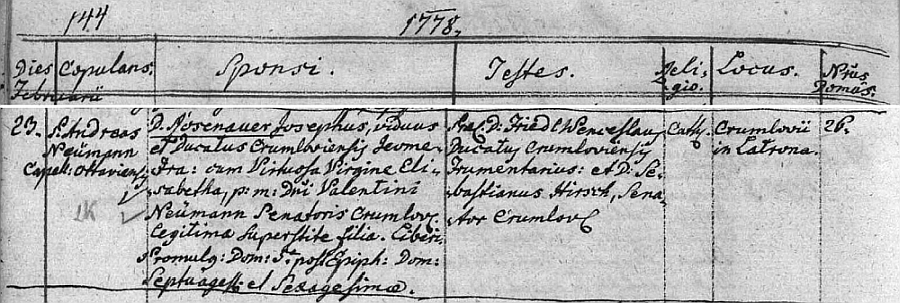 144
1778.
Dies Copulans. Sponsi. Testes. Reli- Locus. Nrus
Februarii gio. Domûs.
23. P. Andreas
Neümann
Capell: Ottaviensis
D. Rosenauer Josephus, viduus
et Ducatus Crumloviensis Geome-
tra: cum Virtuosa Virgine Eli-
sabetha, p: m: Dñi Valentini
Neümann Senatoris Crumlov.
legitima superstite filia. Liberi.
Promulg: Dom: post Epiph: Dom:
Septuages: et Sexagesimæ.
D: Friedl Wenceslaus
Ducatus Crumloviensis
Frumentarius: et D: Se-
bastianus Hirsch, Sena-
tor Crumlov
Cath. Crumlovii 26.
in Latrona.